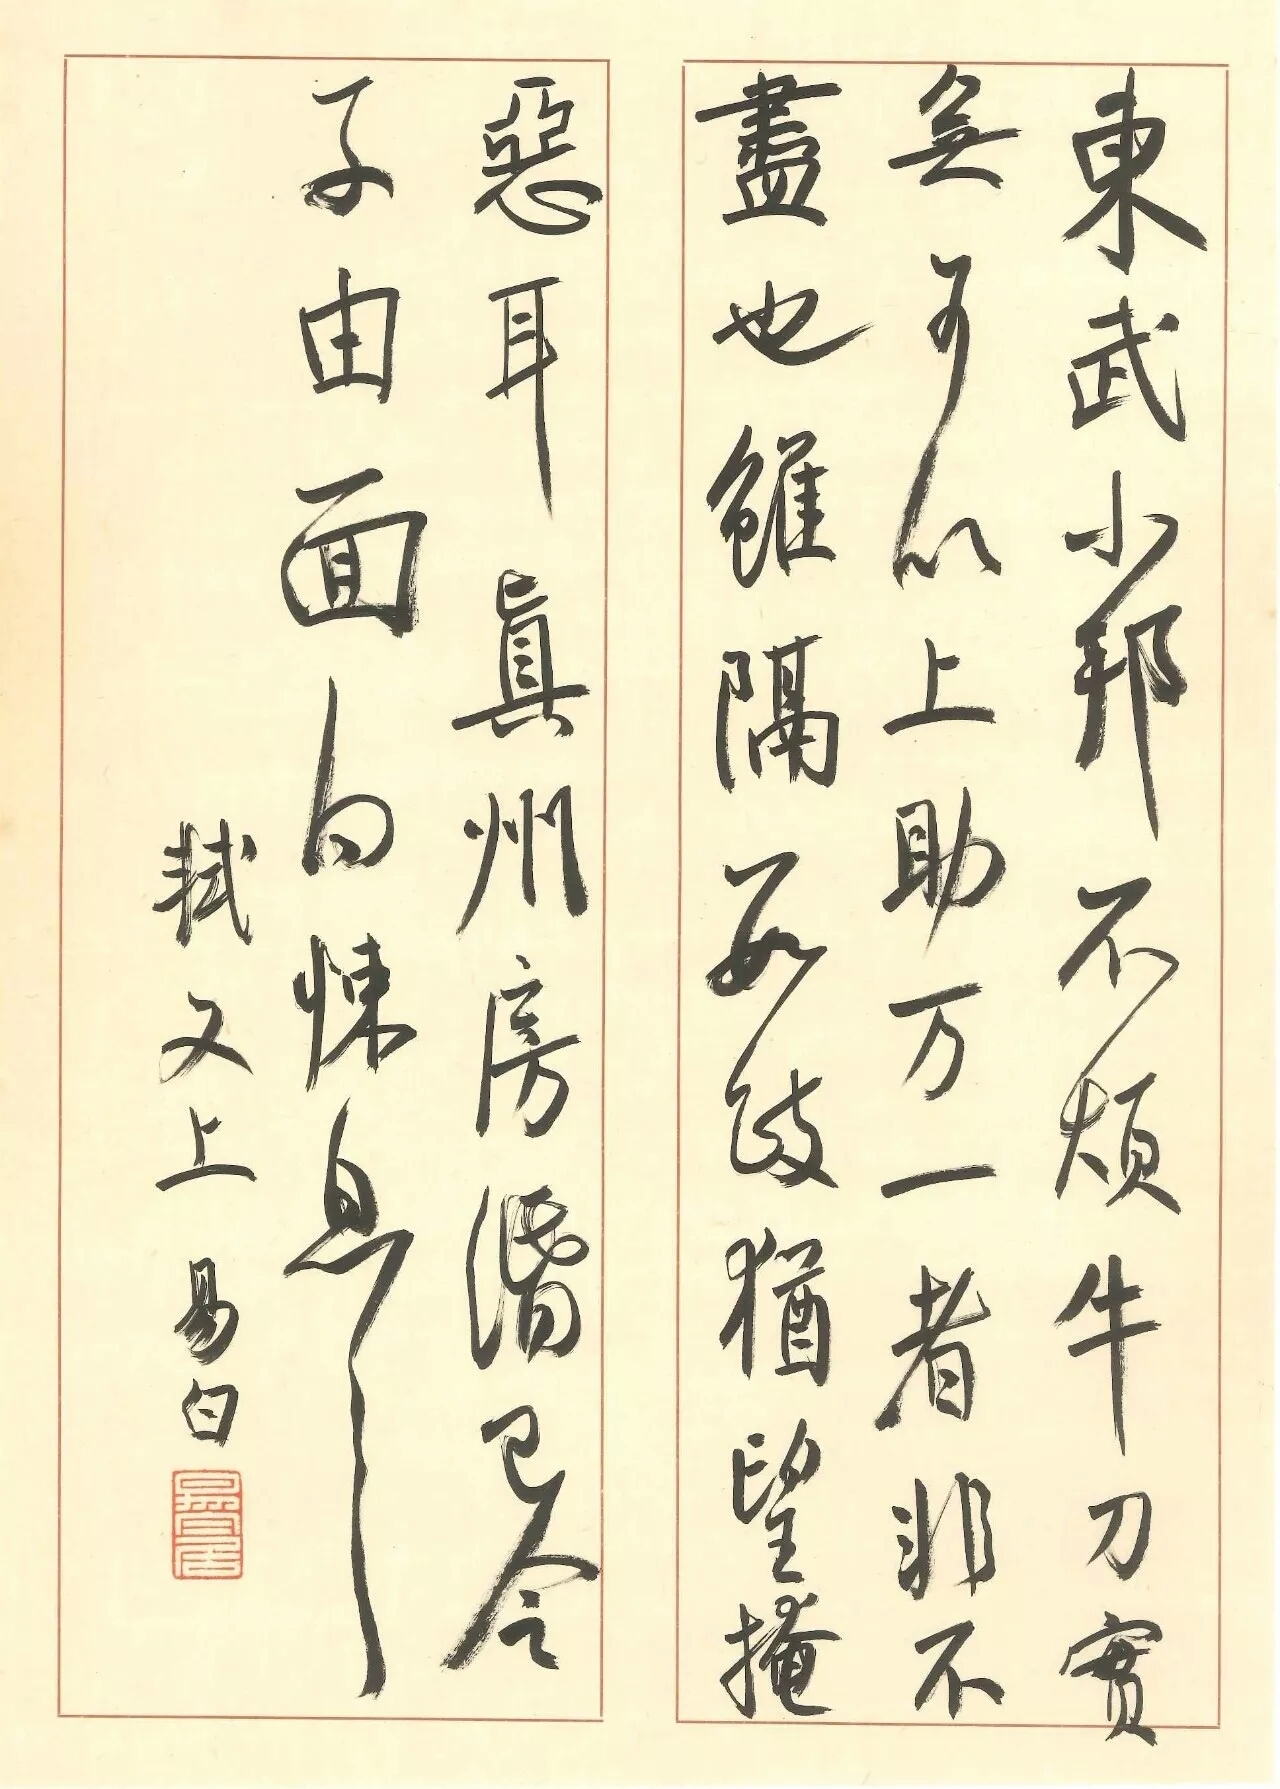 東武小邦不煩牛刀實
無可以上助万一者非不
盡也雖隔數政猶望掩
惡耳真州房緡已令
子由面白悚息
軾又上 易白